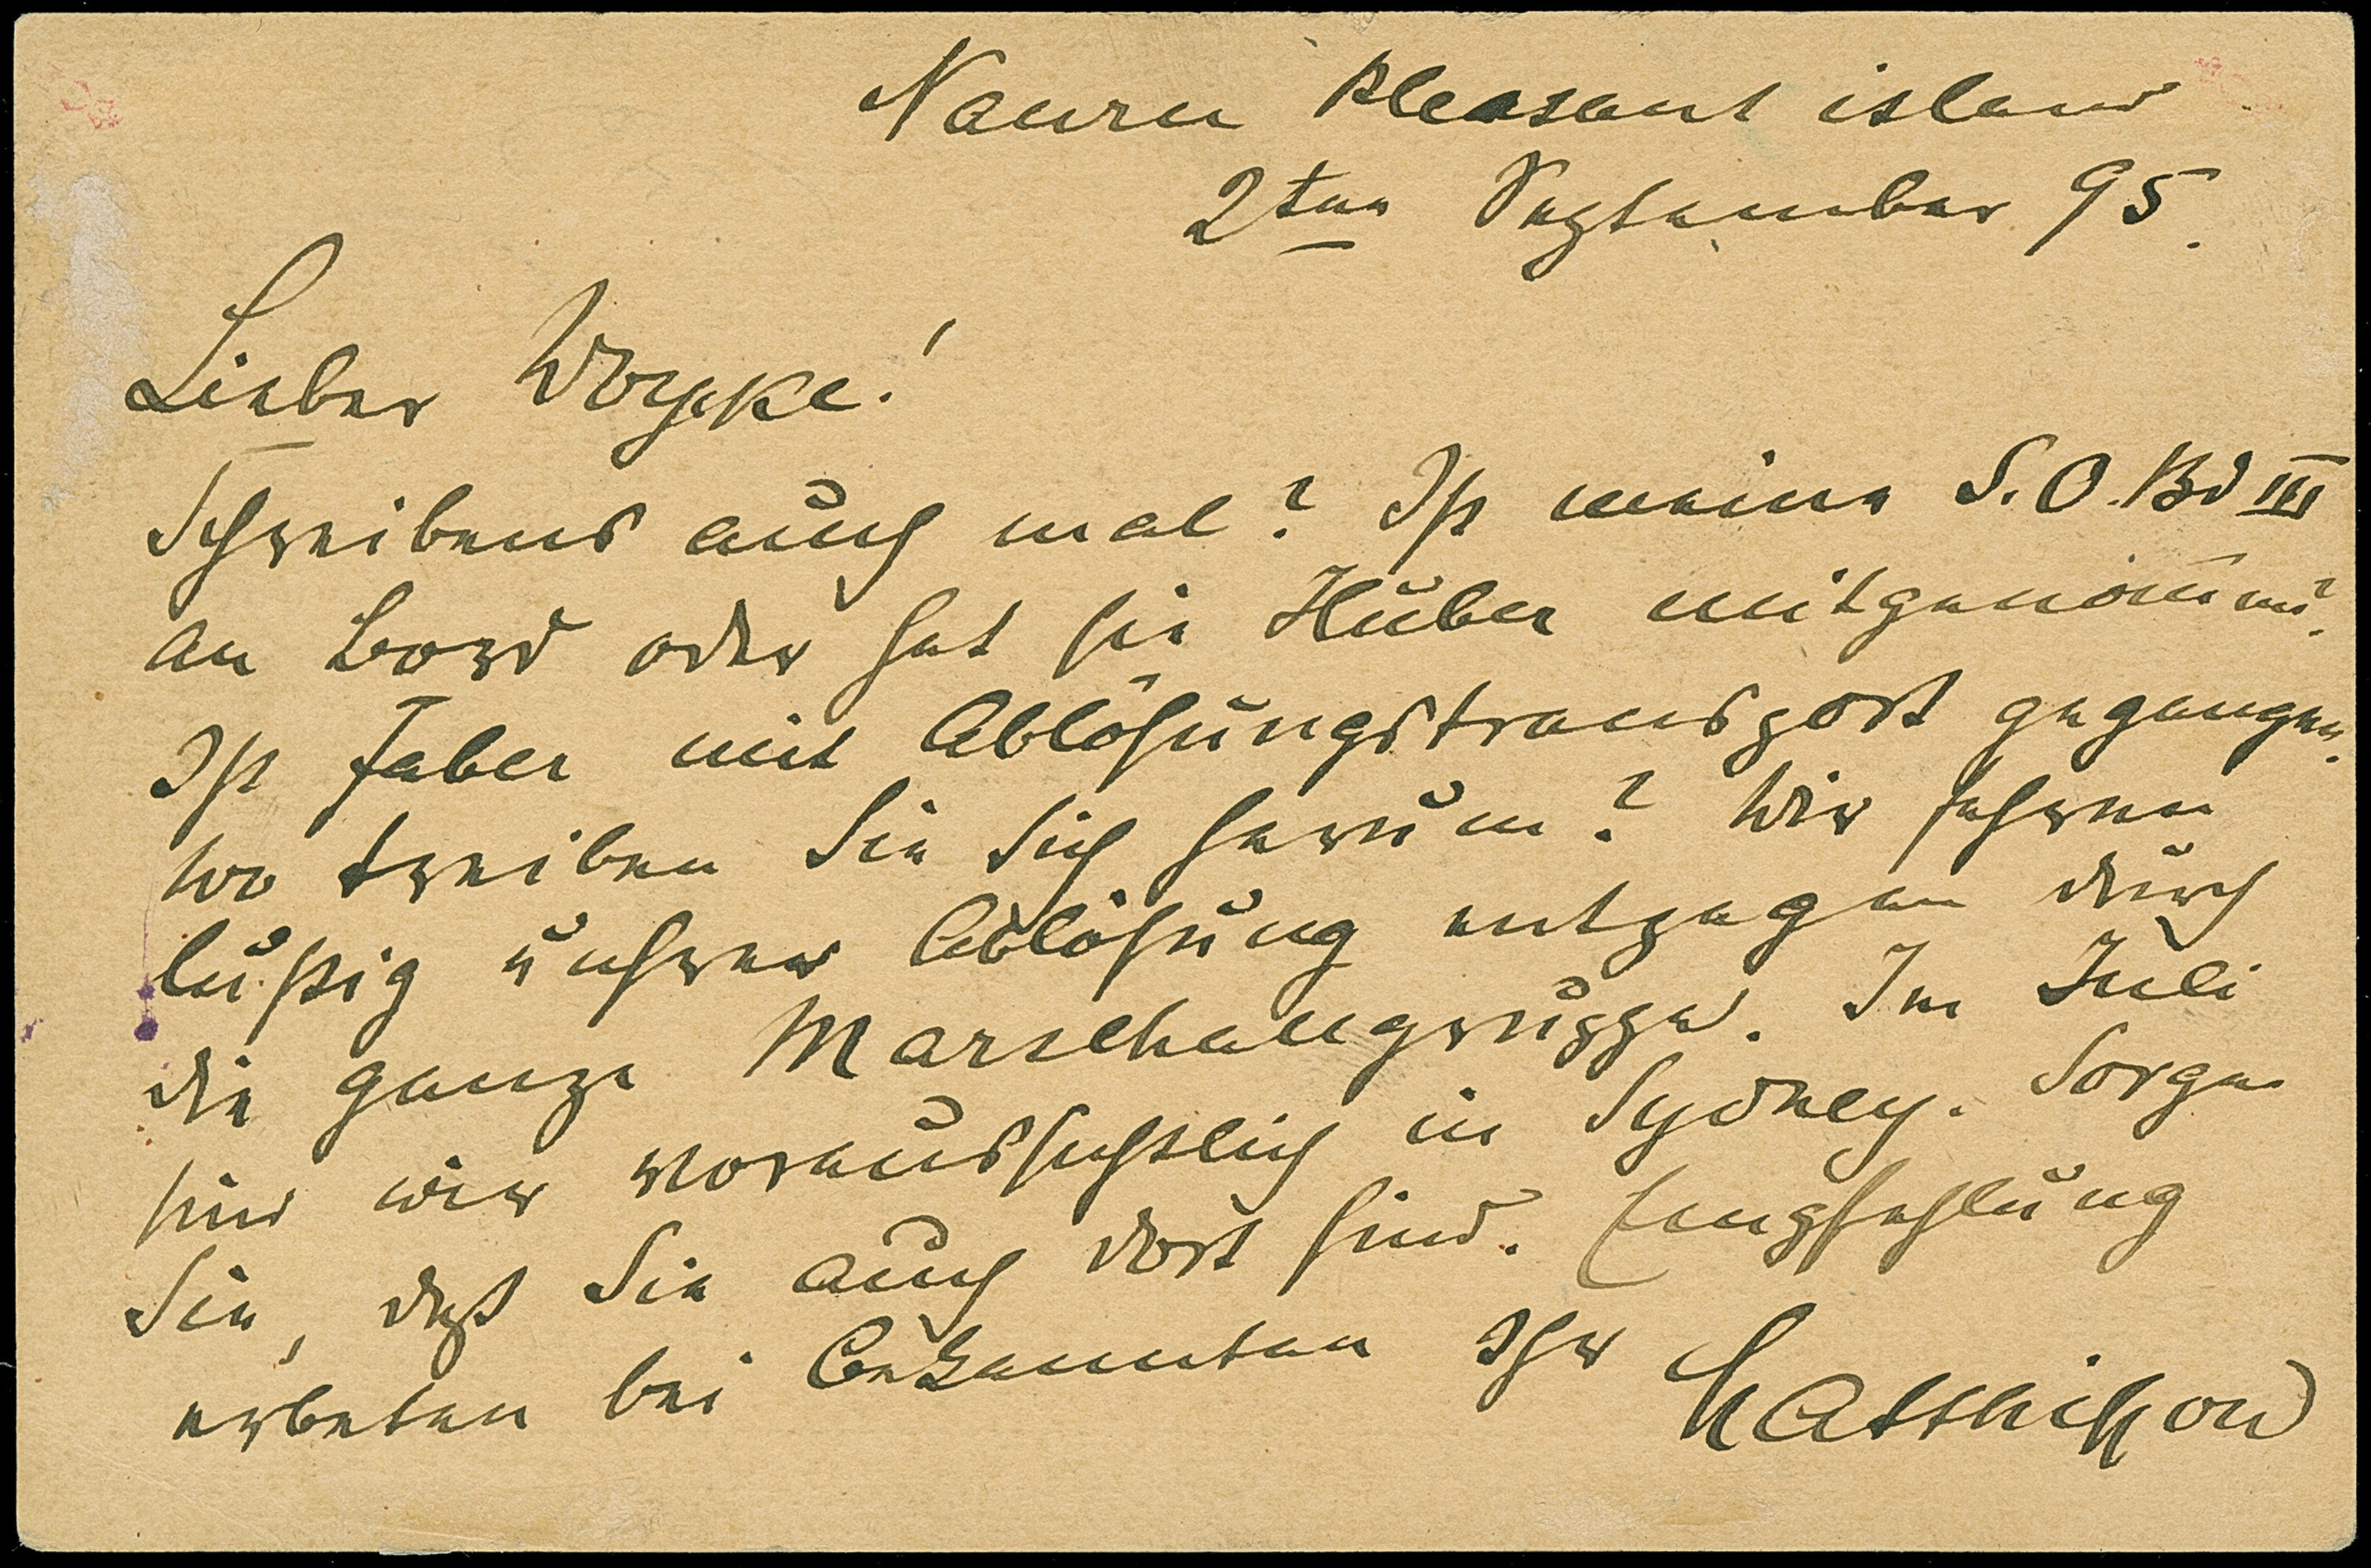 Nauru Pleasant island
2ten September 95.
Lieber Woycke!
Schreibens auch mal? Ist meine S. O. Bd III
an Bord oder hat sie Huber mitgenom̄en?
Ist Faber mit Ablösungstransport gegangen.
Wo treiben Sie Sich herum? Wir fahren
lustig unserer Ablösung entgegen durch
die ganze Marschallgruppe. Im Juli
sind wir voraussichtlich in Sydney. Sorgen
Sie, daß Sie auch dort sind. Empfehlung
erbeten bei Bekannten Ihr